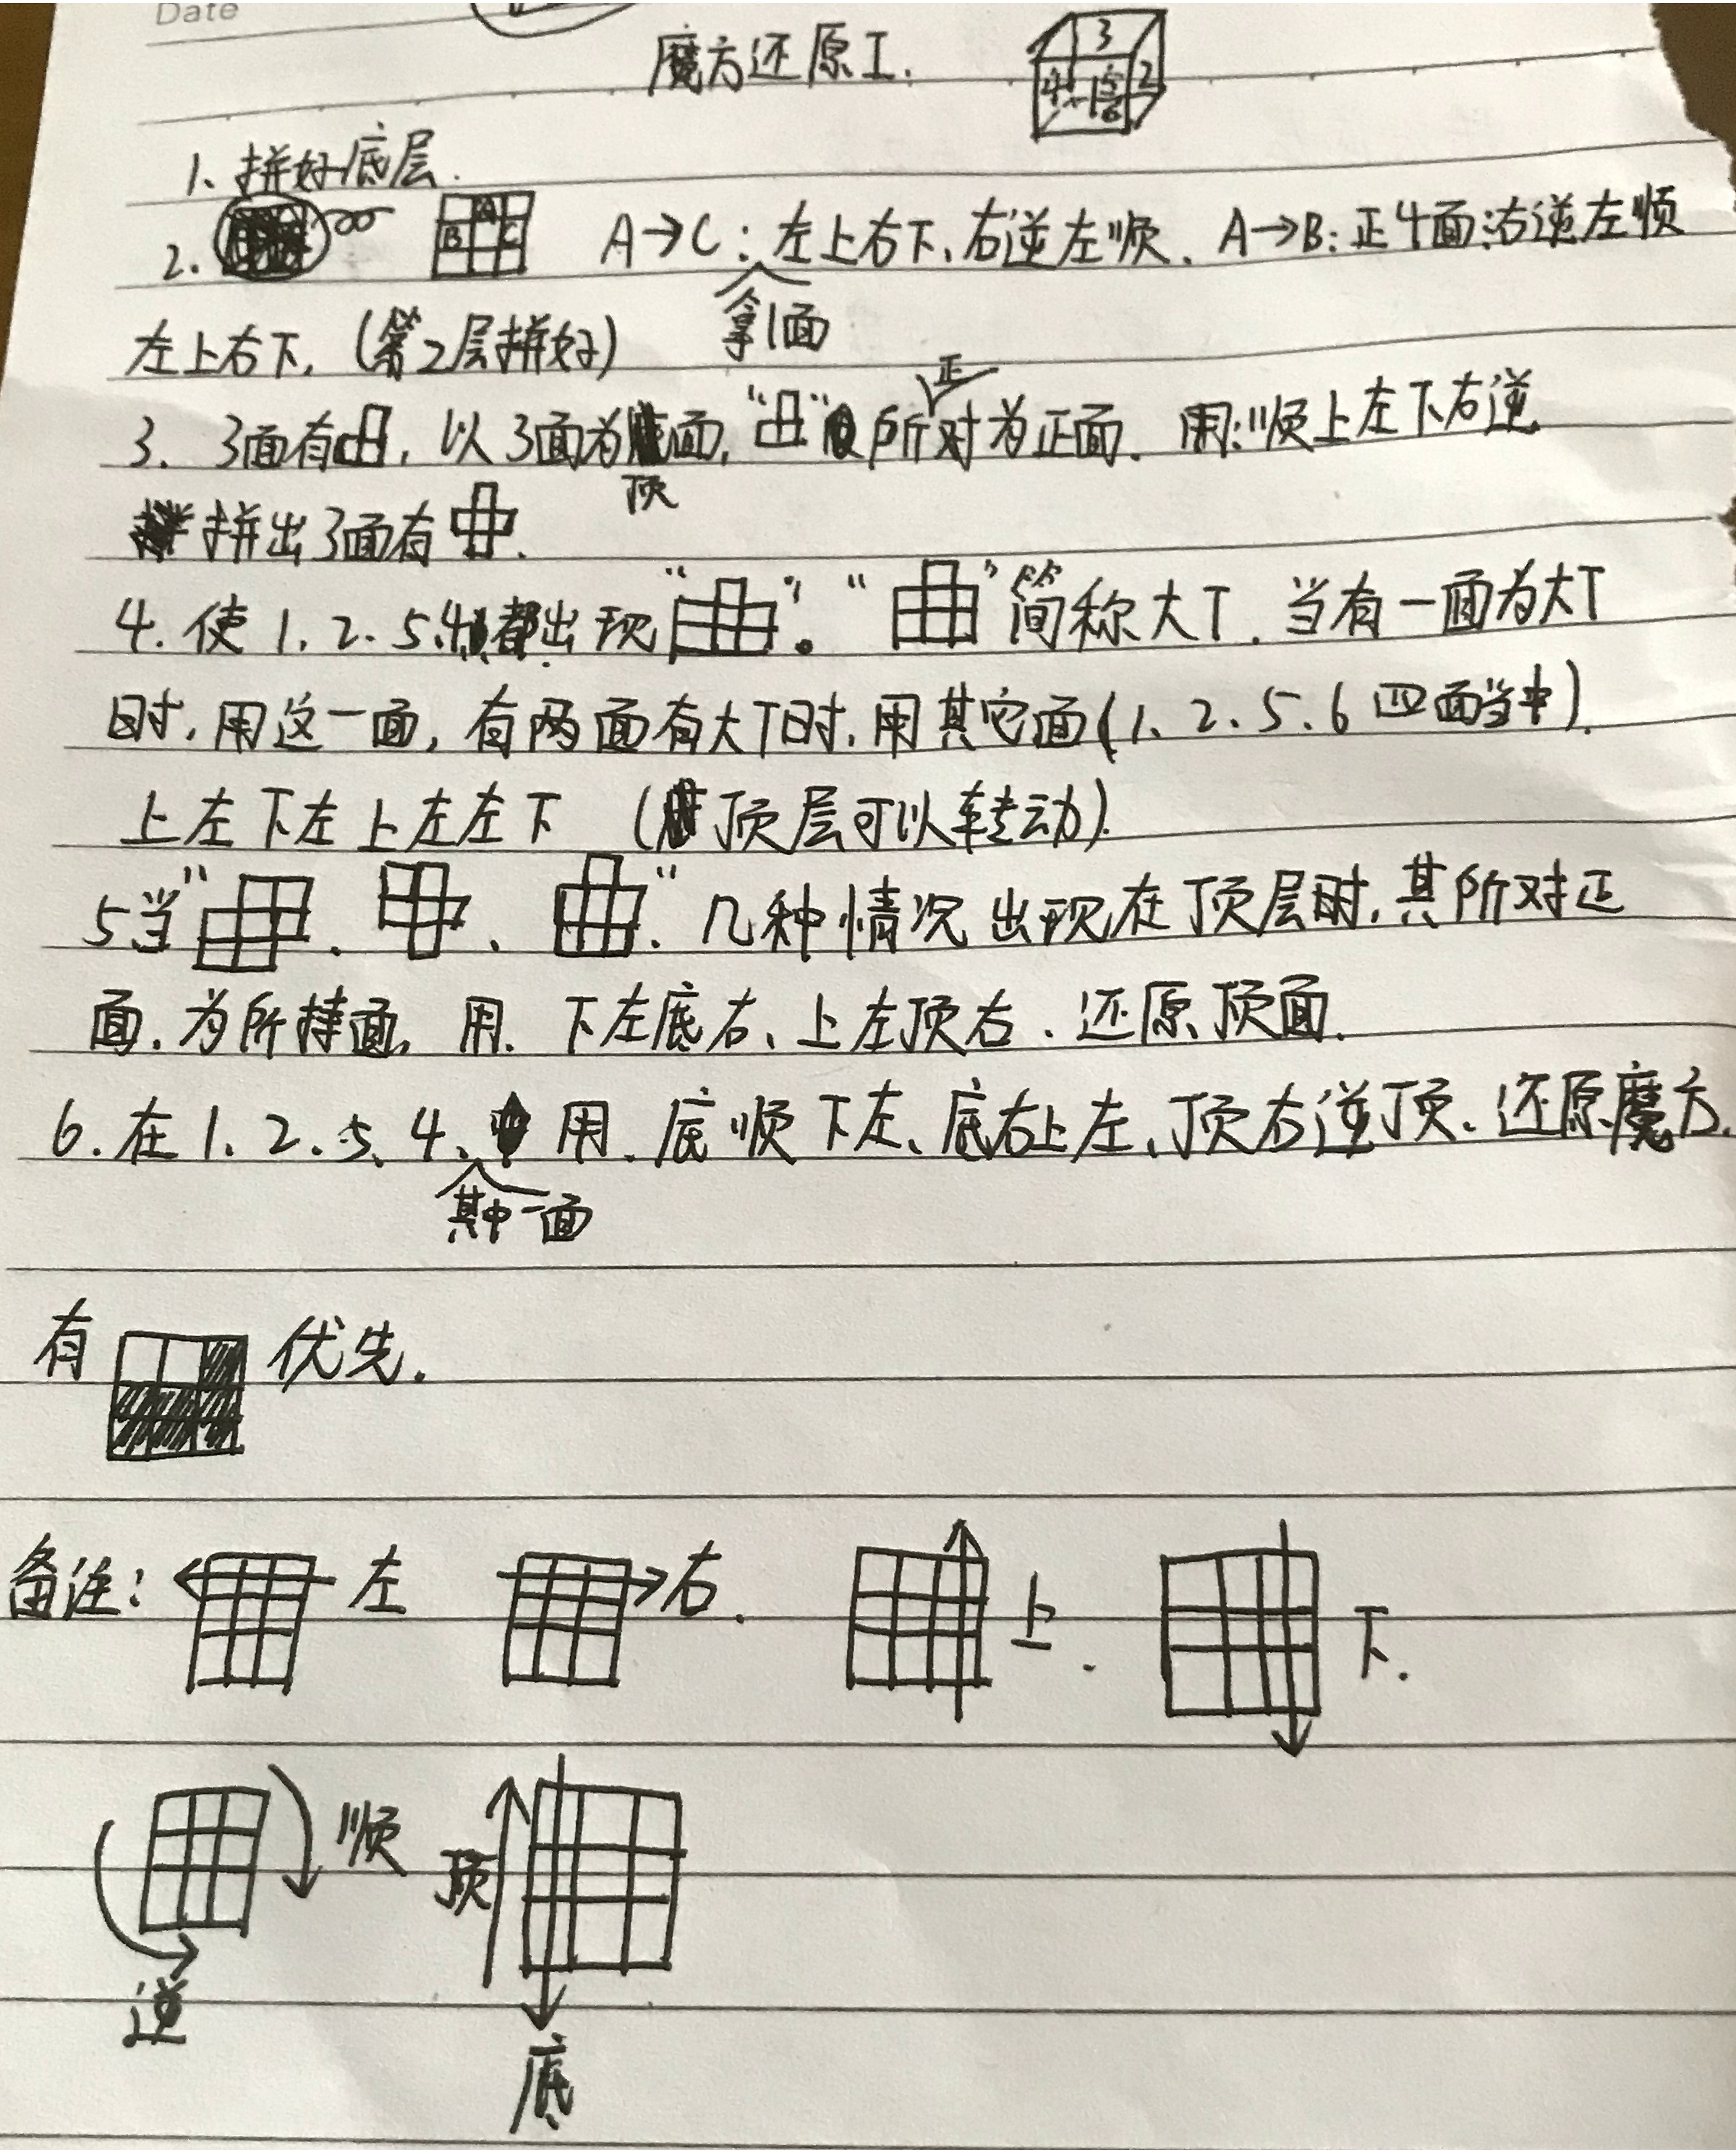 Date
魔方还原工.
3
4 1 5 6 2
1、拼好底层.
2. A B C A→C:左上右下、右逆左顺、A→B:正4面:右逆左顺
拿1面
左上右下.(第2层拼好)
3. 3面有,以3面为顶面,“ ”所对为正面. 用:顺上左下右逆
正
拼出3面有
4. 使1、2、5、4都出现“ ”。“ ”简称大T. 当有一面为大T
时,用这一面,有两面有大T时,用其它面(1、2、5、6四面当中).
上左下左上左左下 (顶层可以转动).
5当“ 、 、 ”几种情况出现在顶层时,其所对正
面.为所持面. 用. 下左底右、上左顶右. 还原顶面.
6. 在1、2、5、4、其中一面用. 底顺下左、底右上左、顶右逆顶、还原魔方.
有 优先.
备注: 左 右. 上. 下.
顺 顶
逆
底